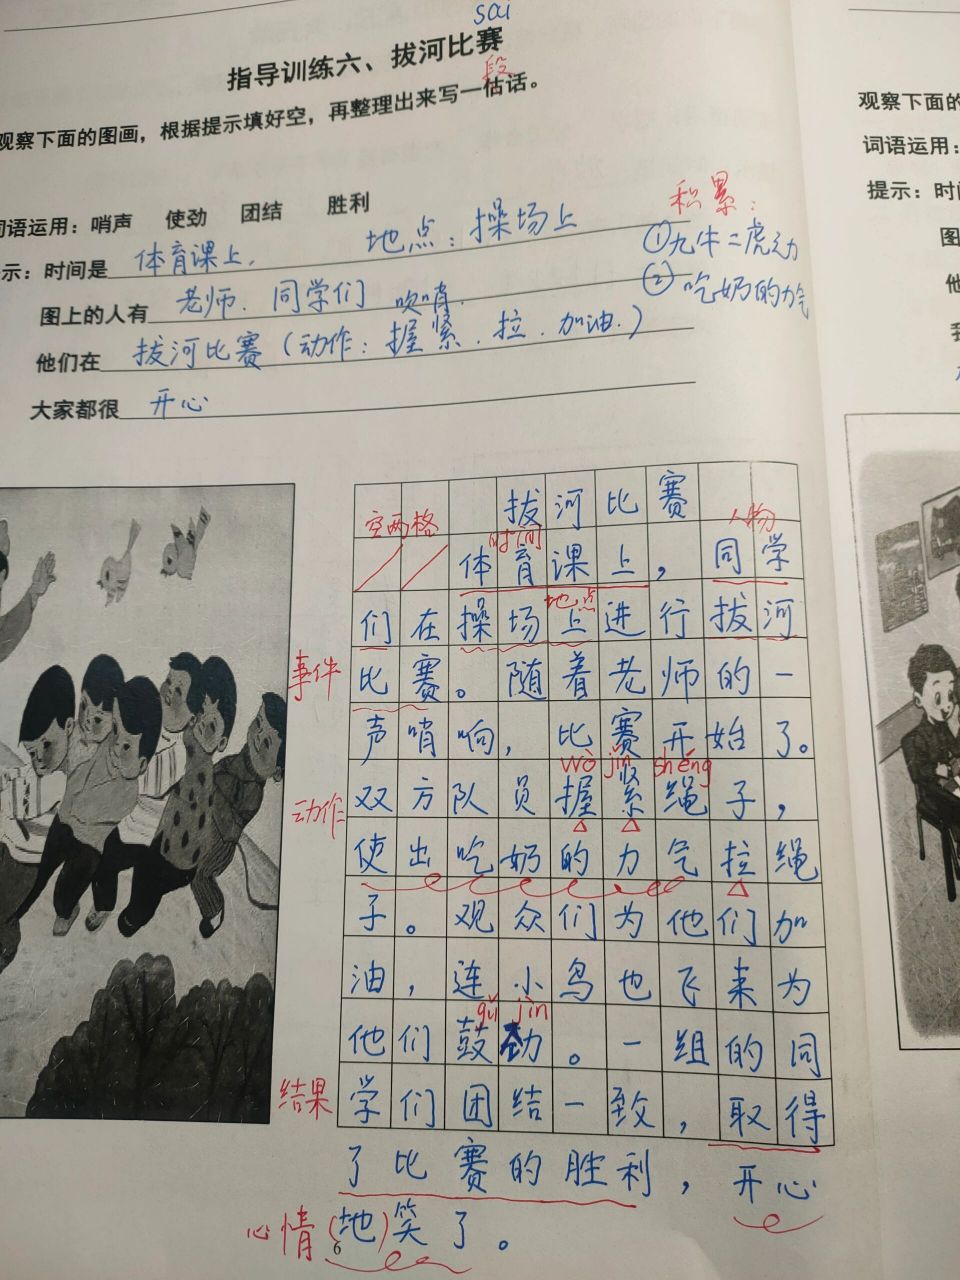 sai
指导训练六、拔河比赛
段
观察下面的图画，根据提示填好空，再整理出来写一估话。
词语运用：哨声 使劲 团结 胜利
示：时间是 体育课上， 地点：操场上
图上的人有 老师、同学们 吹哨
他们在 拔河比赛（动作：握紧、拉、加油、）
大家都很 开心
积累：
①九牛二虎之力
②吃奶的力气
观察下面的
词语运用：
提示：时间
图
他
我
拔河比赛
空两格 时间 人物
体育课上，同学
地点
们在操场上进行拔河
事件
比赛。随着老师的一
声哨响，比赛开始了。
wò jǐn shéng
动作
双方队员握紧绳子，
使出吃奶的力气拉绳
子。观众们为他们加
油，连小鸟也飞来为
gǔ jìn
他们鼓劲。一组的同
结果
学们团结一致，取得
了比赛的胜利，开心
心情
(地)笑了。
6